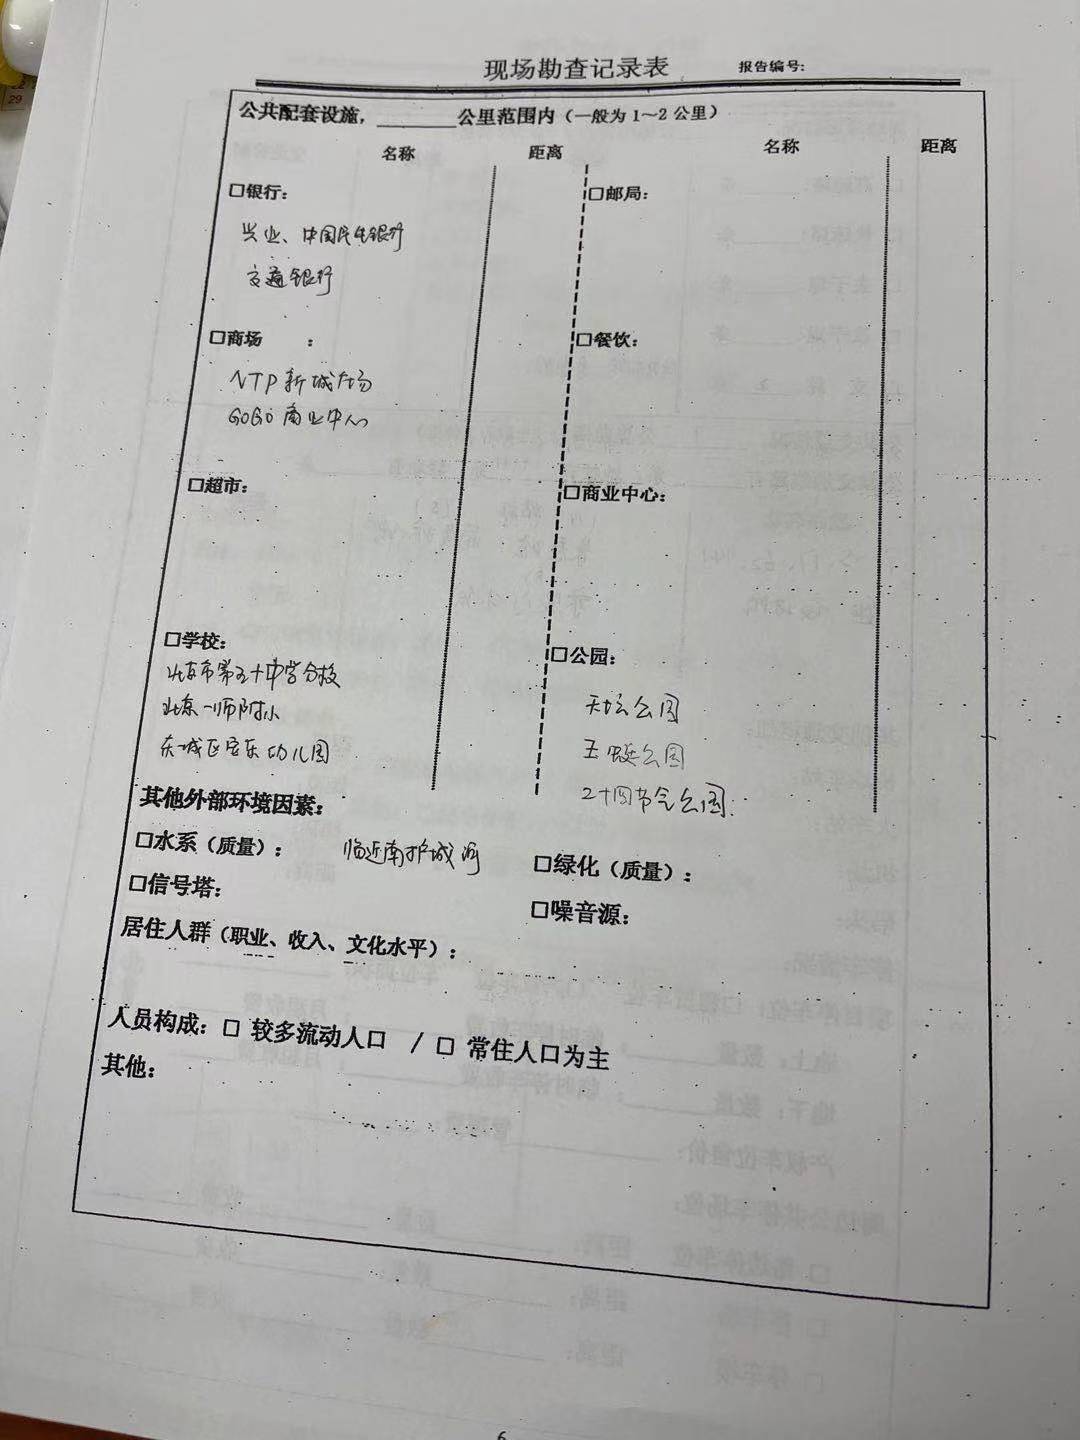 现场勘查记录表 报告编号:
公共配套设施，______公里范围内（一般为 1~2 公里）
名称 距离 名称 距离
□银行: □邮局:
兴业、中国民生银行
交通银行
□商场 : □餐饮:
NTP新城广场
GOGO商业中心
□超市: □商业中心:
□学校: □公园:
北京市第五十中学分校 天坛公园
北京一师附小 玉蜓公园
东城区安乐幼儿园 二十四节气公园
其他外部环境因素:
□水系（质量）: 临近南护城河 □绿化（质量）:
□信号塔: □噪音源:
居住人群（职业、收入、文化水平）:
人员构成: □ 较多流动人口 / □ 常住人口为主
其他:
6